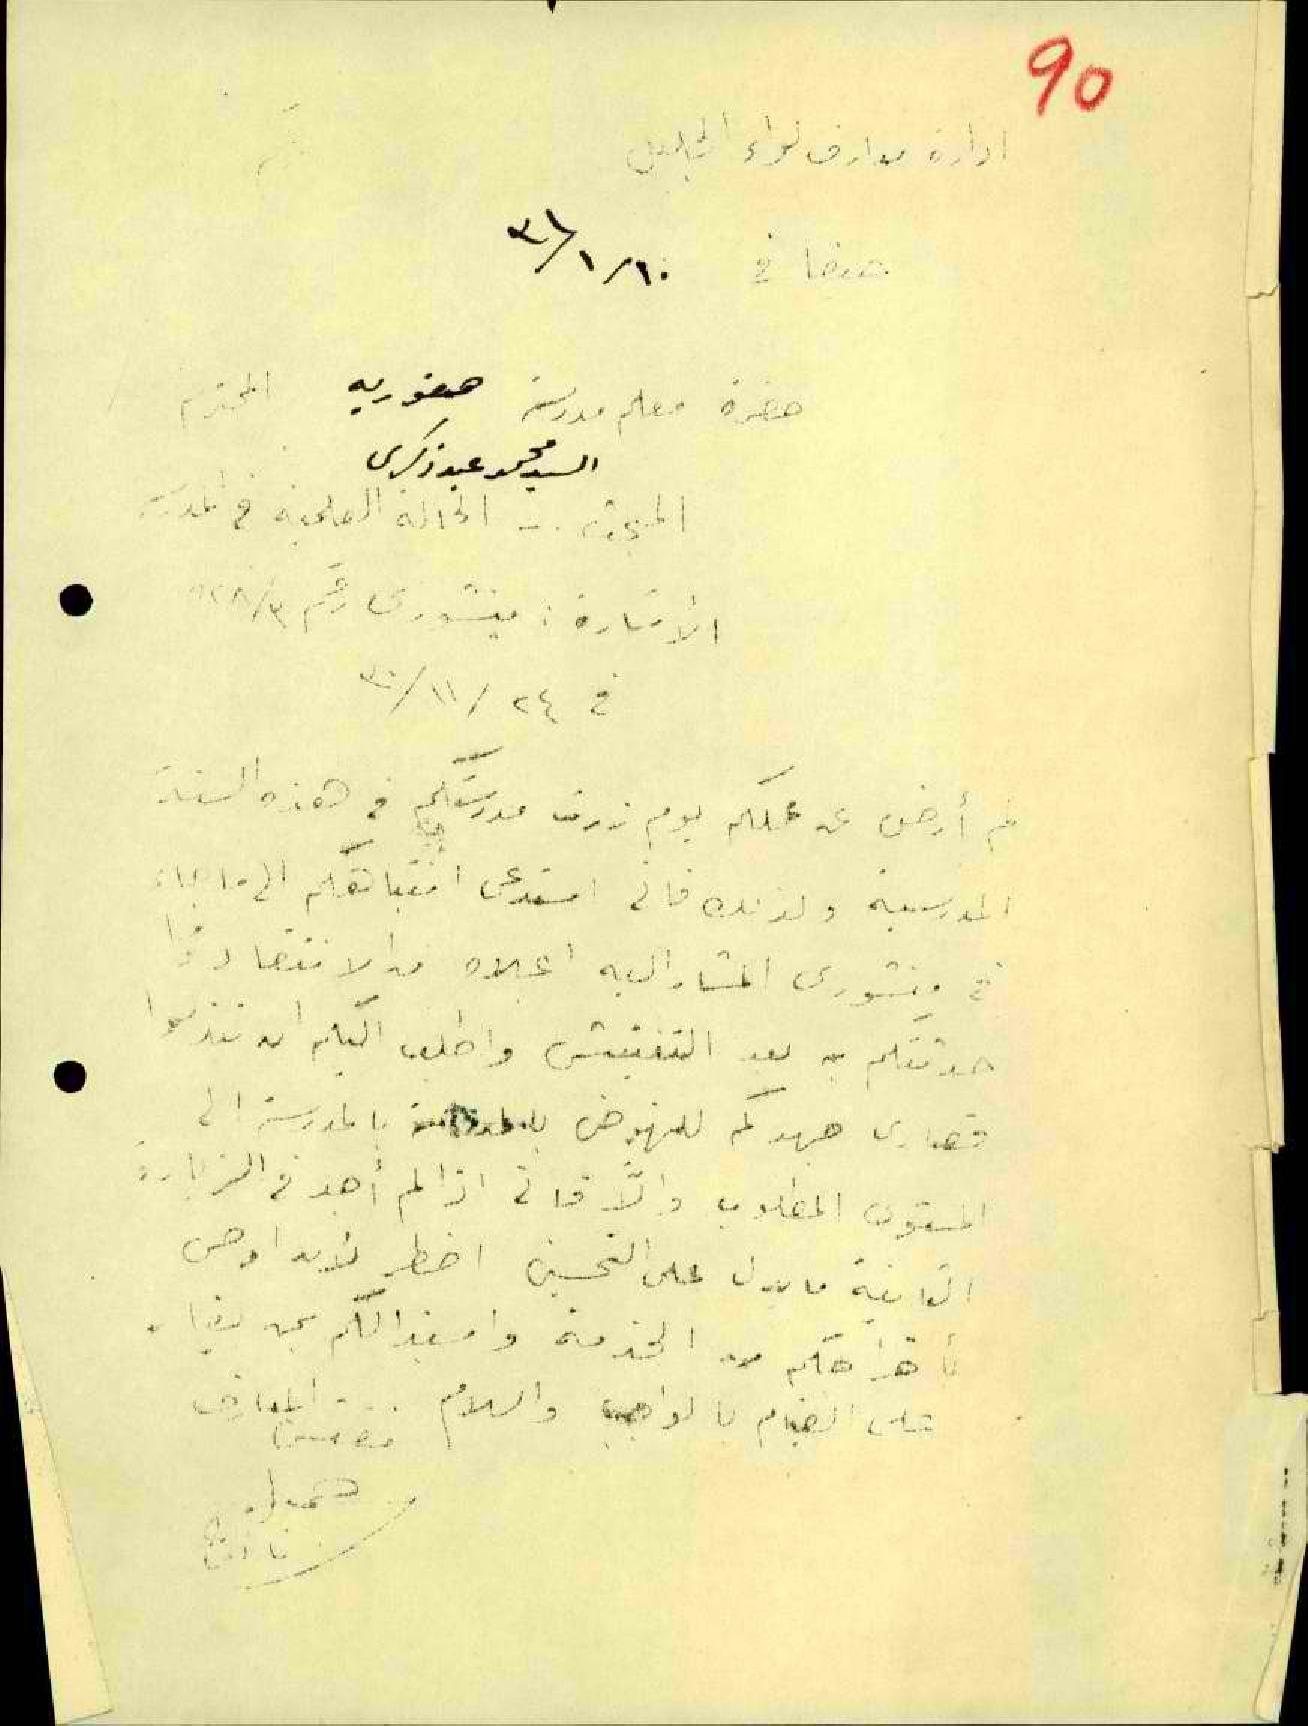 90
ادارة معارف لواء الجليل
حيفا في ١٠/١/٣١
حضرة معلم مدرسة صفوريه المحترم
السيد محمد عبد زكرى
المبحث :- الحالة العلمية في المدرسة
الاشارة : منشورى رقم
في ٢٤/١١/٣٠
لم أرض عن عملكم يوم زرت مدرستكم في هذه السنة
المدرسية ولذلك فاني استدعي انتباهكم الى ما جاء
في منشورى المشار اليه اعلاه من الانتقاد وما
حدثتكم به بعد التفتيش واطلب اليكم ان تبذلوا
قصارى جهدكم للنهوض بالمدرسة الى
المستوى المطلوب والّا فاني اذا لم أجد في الزيارة
الثانية ما يدل على التحسين اضطر لأن اوصى
بأخراجكم من الخدمة واستبدالكم بمن يغار
على القيام بالواجب والسلام
مفتش المعارف
جميل